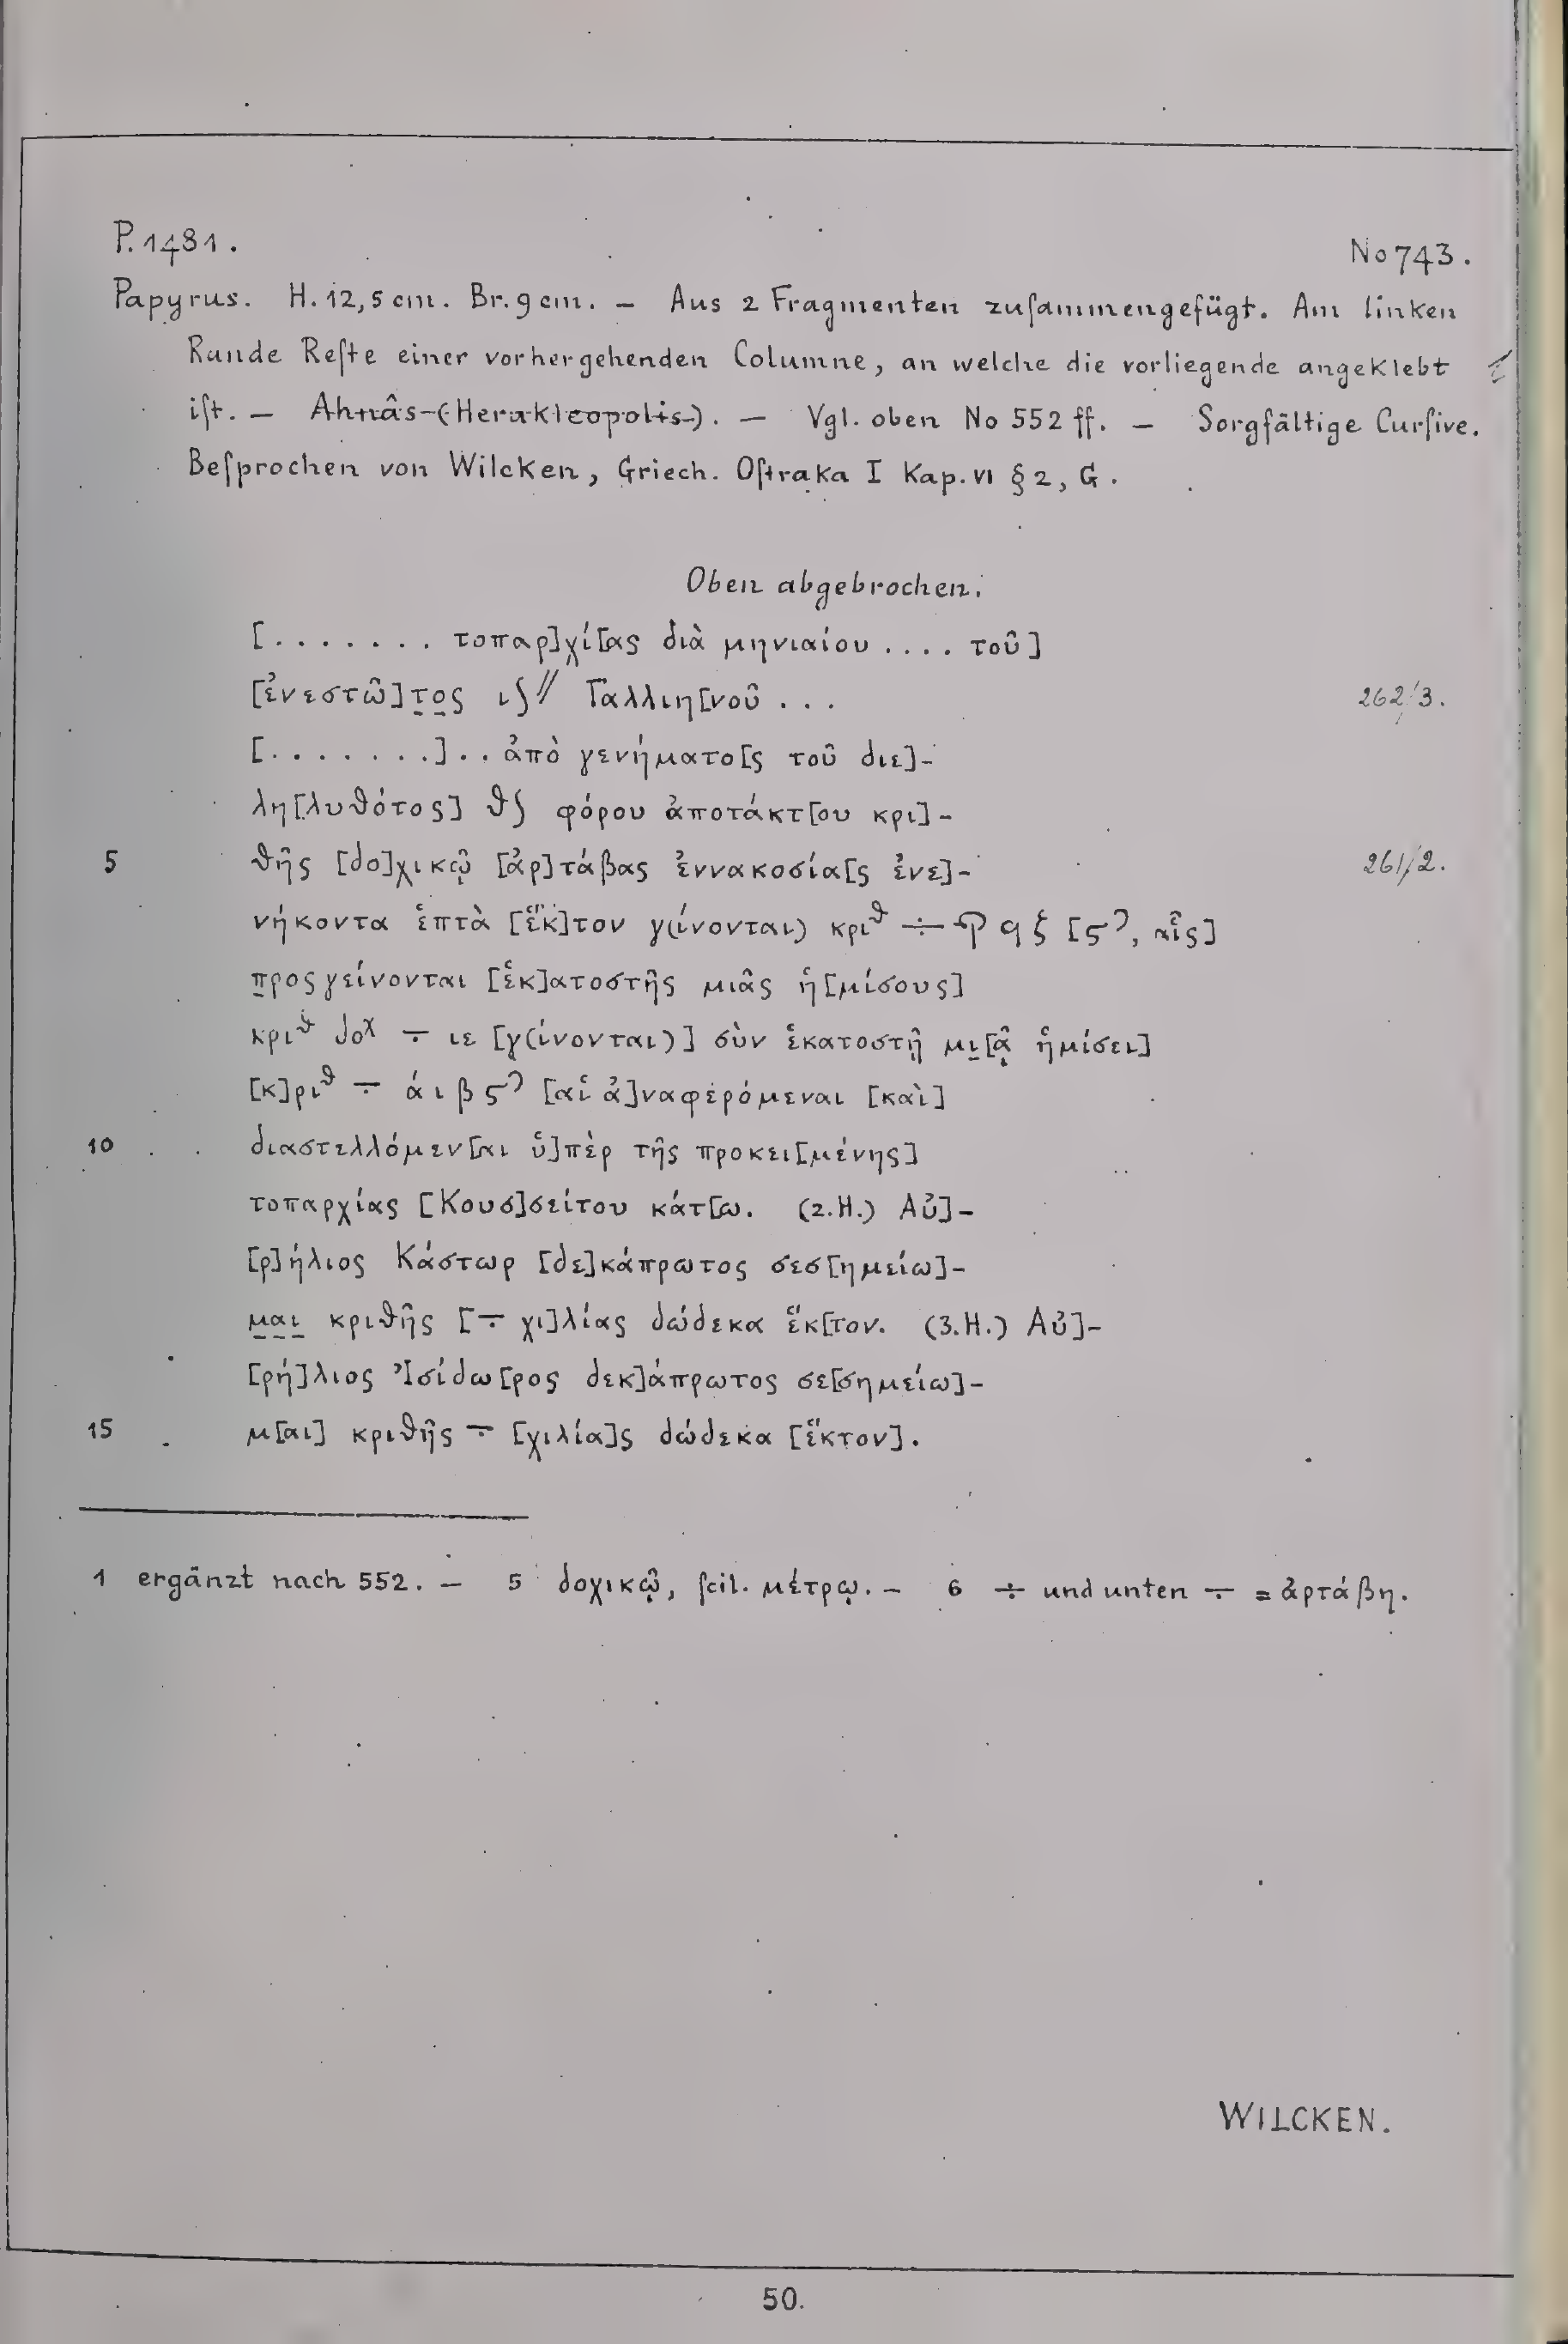 P. 1481.
No 743.
Papyrus. H. 12,5 cm. Br. 9 cm. – Aus 2 Fragmenten zuſammengefügt. Am linken
Rande Reſte einer vorhergehenden Columne, an welche die vorliegende angeklebt
iſt. – Ahnâs (Herakleopolis). – Vgl. oben No 552 ff. – Sorgfältige Curſive.
Beſprochen von Wilcken, Griech. Oſtraka I Kap. VI § 2, G.
Oben abgebrochen.
[. . . . . . . τοπαρ]χί[ας διὰ μηνιαίου . . . . τοῦ]
[ἐνεστῶ]τ̲ο̲ς ι𐅹 // Γαλλιη[νοῦ . . . 262/3.
[. . . . . . .] . . ἀπὸ γενήματο[ς τοῦ διε]-
λη[λυθότος] θ𐅹 φόρου ἀποτάκτ[ου κρι]-
5 θῆς [δο]χικῷ [ἀρ]τάβας ἐννακοσία[ς ἐνε]- 261/2.
νήκοντα ἑπτὰ [ἕκ]τον γ(ίνονται) κριθ ÷ ϡ ϙ ζ [ϛʹ, αἷς]
π̲ροςγείνονται [ἑκ]ατοστῆς μιᾶς ἡ[μίσους]
κριθ δοχ ⨪ ιε [γ(ίνονται)] σὺν ἑκατοστῇ μι̲[ᾷ ἡμίσει]
[κ]ριθ ⨪ ά ι β ϛʹ [αἱ ἀ]ναφερόμεναι [καὶ]
10 διαστελλόμεν[αι ὑ]πὲρ τῆς προκει[μένης]
τοπαρχίας [Κουσ]σείτου κάτ[ω. (2. H.) Αὐ]-
[ρ]ήλιος Κάστωρ [δε]κάπρωτος σεσ[ημείω]-
μ̲α̲ι̲ κριθῆς [⨪ χι]λίας δώδεκα ἕκ[τον. (3. H.) Αὐ]-
[ρή]λιος Ἰσίδω[ρος δεκ]άπρωτος σε[σημείω]-
15 μ[αι] κριθῆς ⨪ [χιλία]ς δώδεκα [ἕκτον].
1 ergänzt nach 552. – 5 δοχικῷ, ſcil. μέτρῳ. – 6 ÷ und unten ⨪ = ἀρτάβη.
WILCKEN.
50.